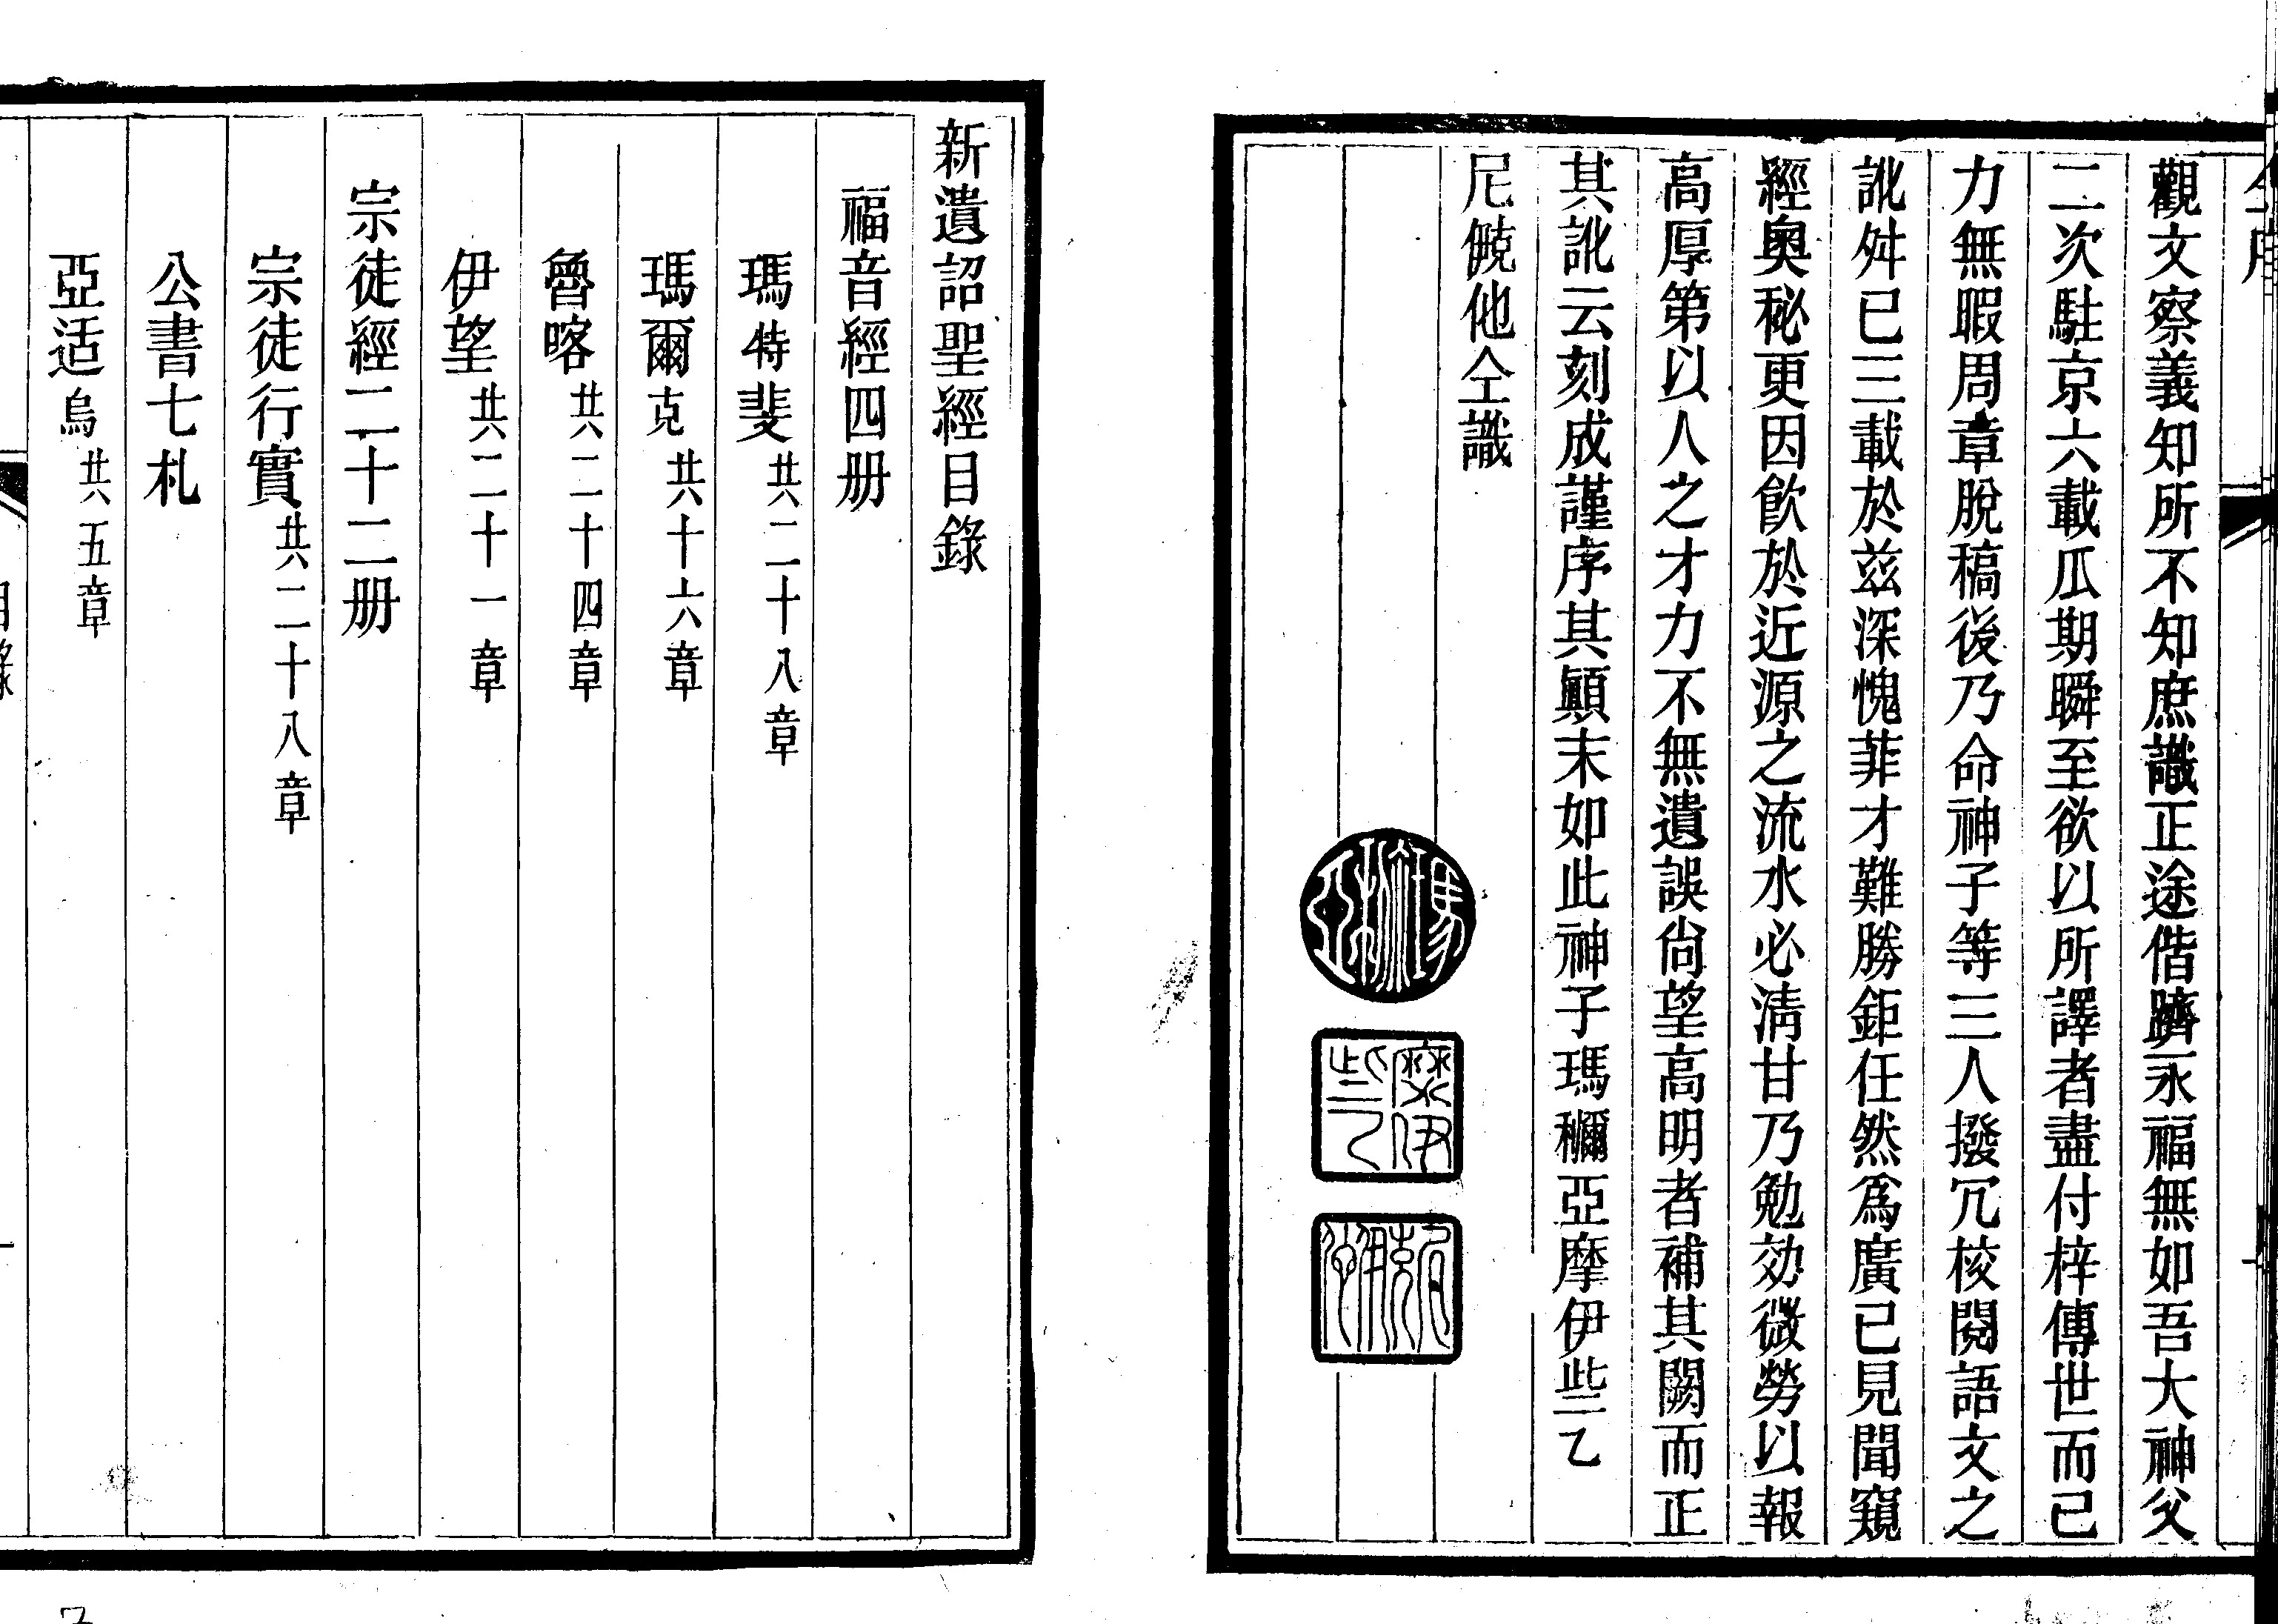 觀文察義知所不知庶識正途偕躋永福無如吾大神父
二次駐京六載瓜期瞬至欲以所譯者盡付梓傳世而已
力無暇周章脫稿後乃命神子等三人撥冗校閱語文之
訛舛已三載於兹深愧菲才難勝鉅任然爲廣已見聞窺
經奥秘更因飲於近源之流水必淸甘乃勉効微勞以報
高厚第以人之才力不無遺誤尙望高明者補其闕而正
其訛云刻成謹序其顚末如此神子瑪穪亞摩伊些乙
尼僥他仝識
摩伊些乙
新遺詔聖經目錄
福音經四册
瑪特斐共二十八章
瑪爾克共十六章
魯喀共二十四章
伊望共二十一章
宗徒經二十二册
宗徒行實共二十八章
公書七札
亞适烏共五章
目錄
一